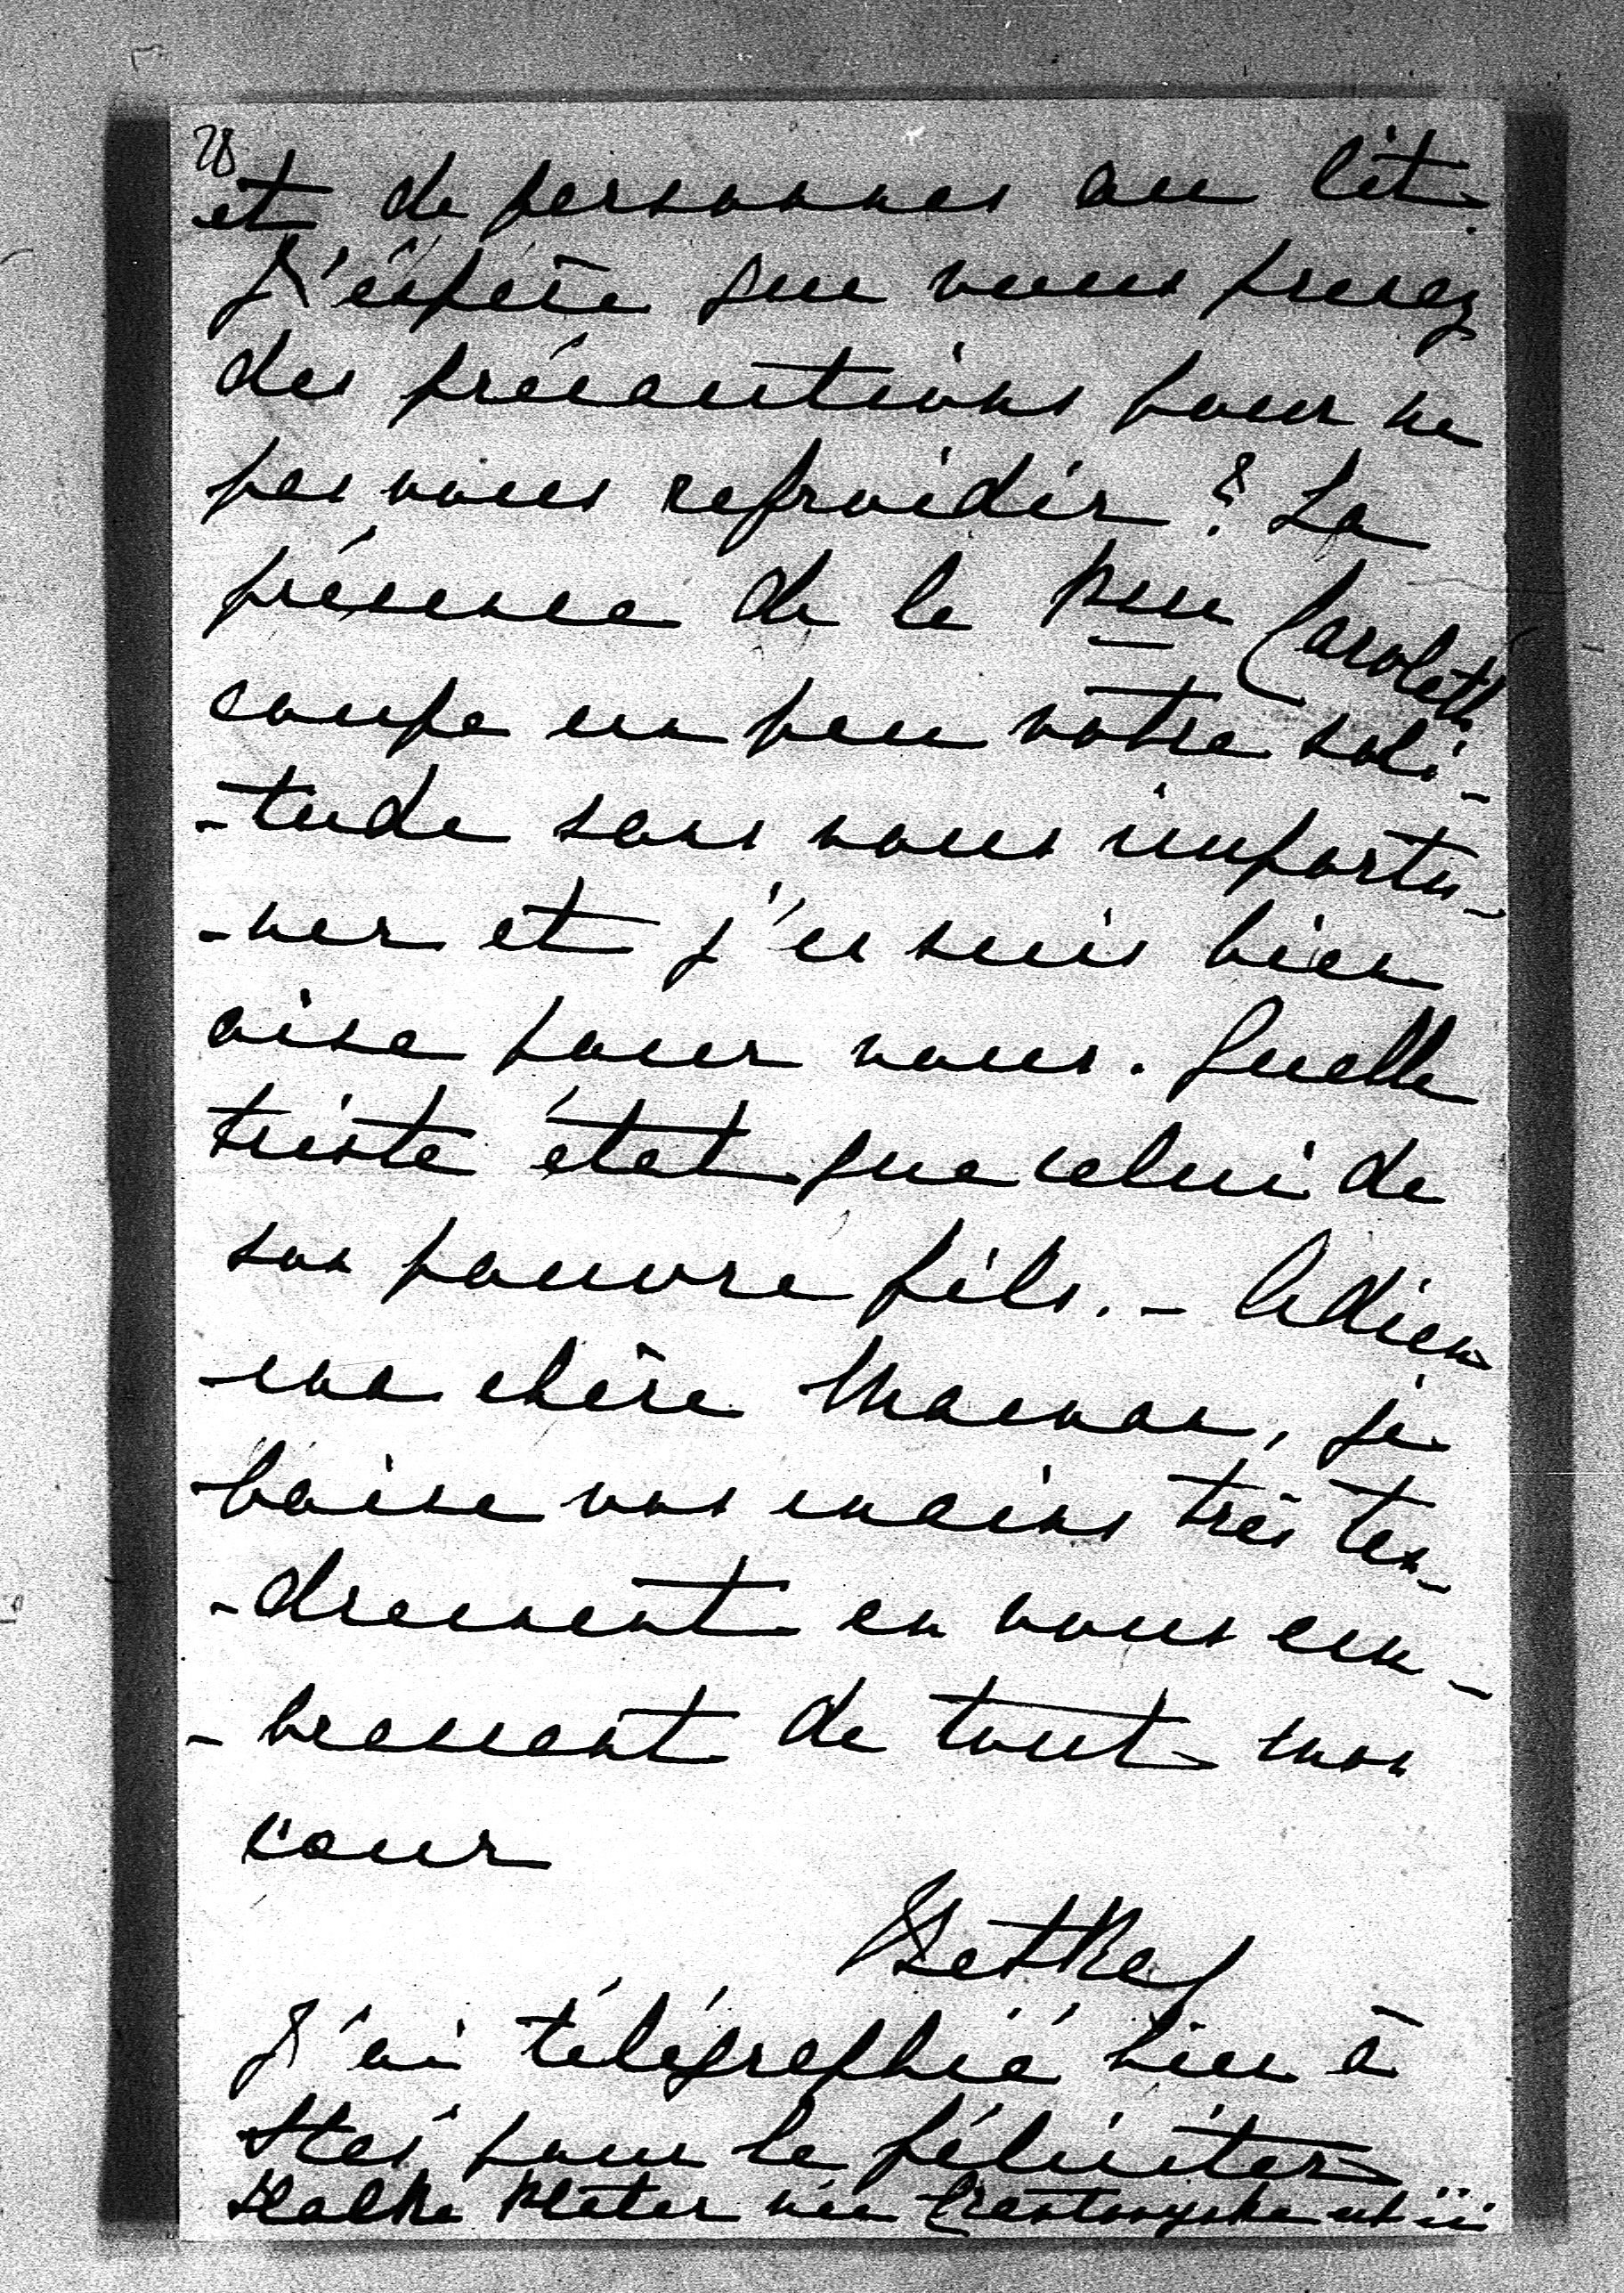 28
et de personnes au lit.
J'espère que vous prenez
des précautions pour ne
pas vous refroidir? La
présence de la Pcesse
coupe un peu votre soli-
-tude sans vous importu-
-ner et j'en suis bien
aise pour vous. Quelle
triste état que celui de
son pauvre fils. - Adieu
ma chère Maman, je
baise vos mains très ten-
-drement en vous em-
-brassant de tout mon
cœur
Betka
J'ai télégraphié hier à
Staś pour le féliciter
Halka Plater née est ici